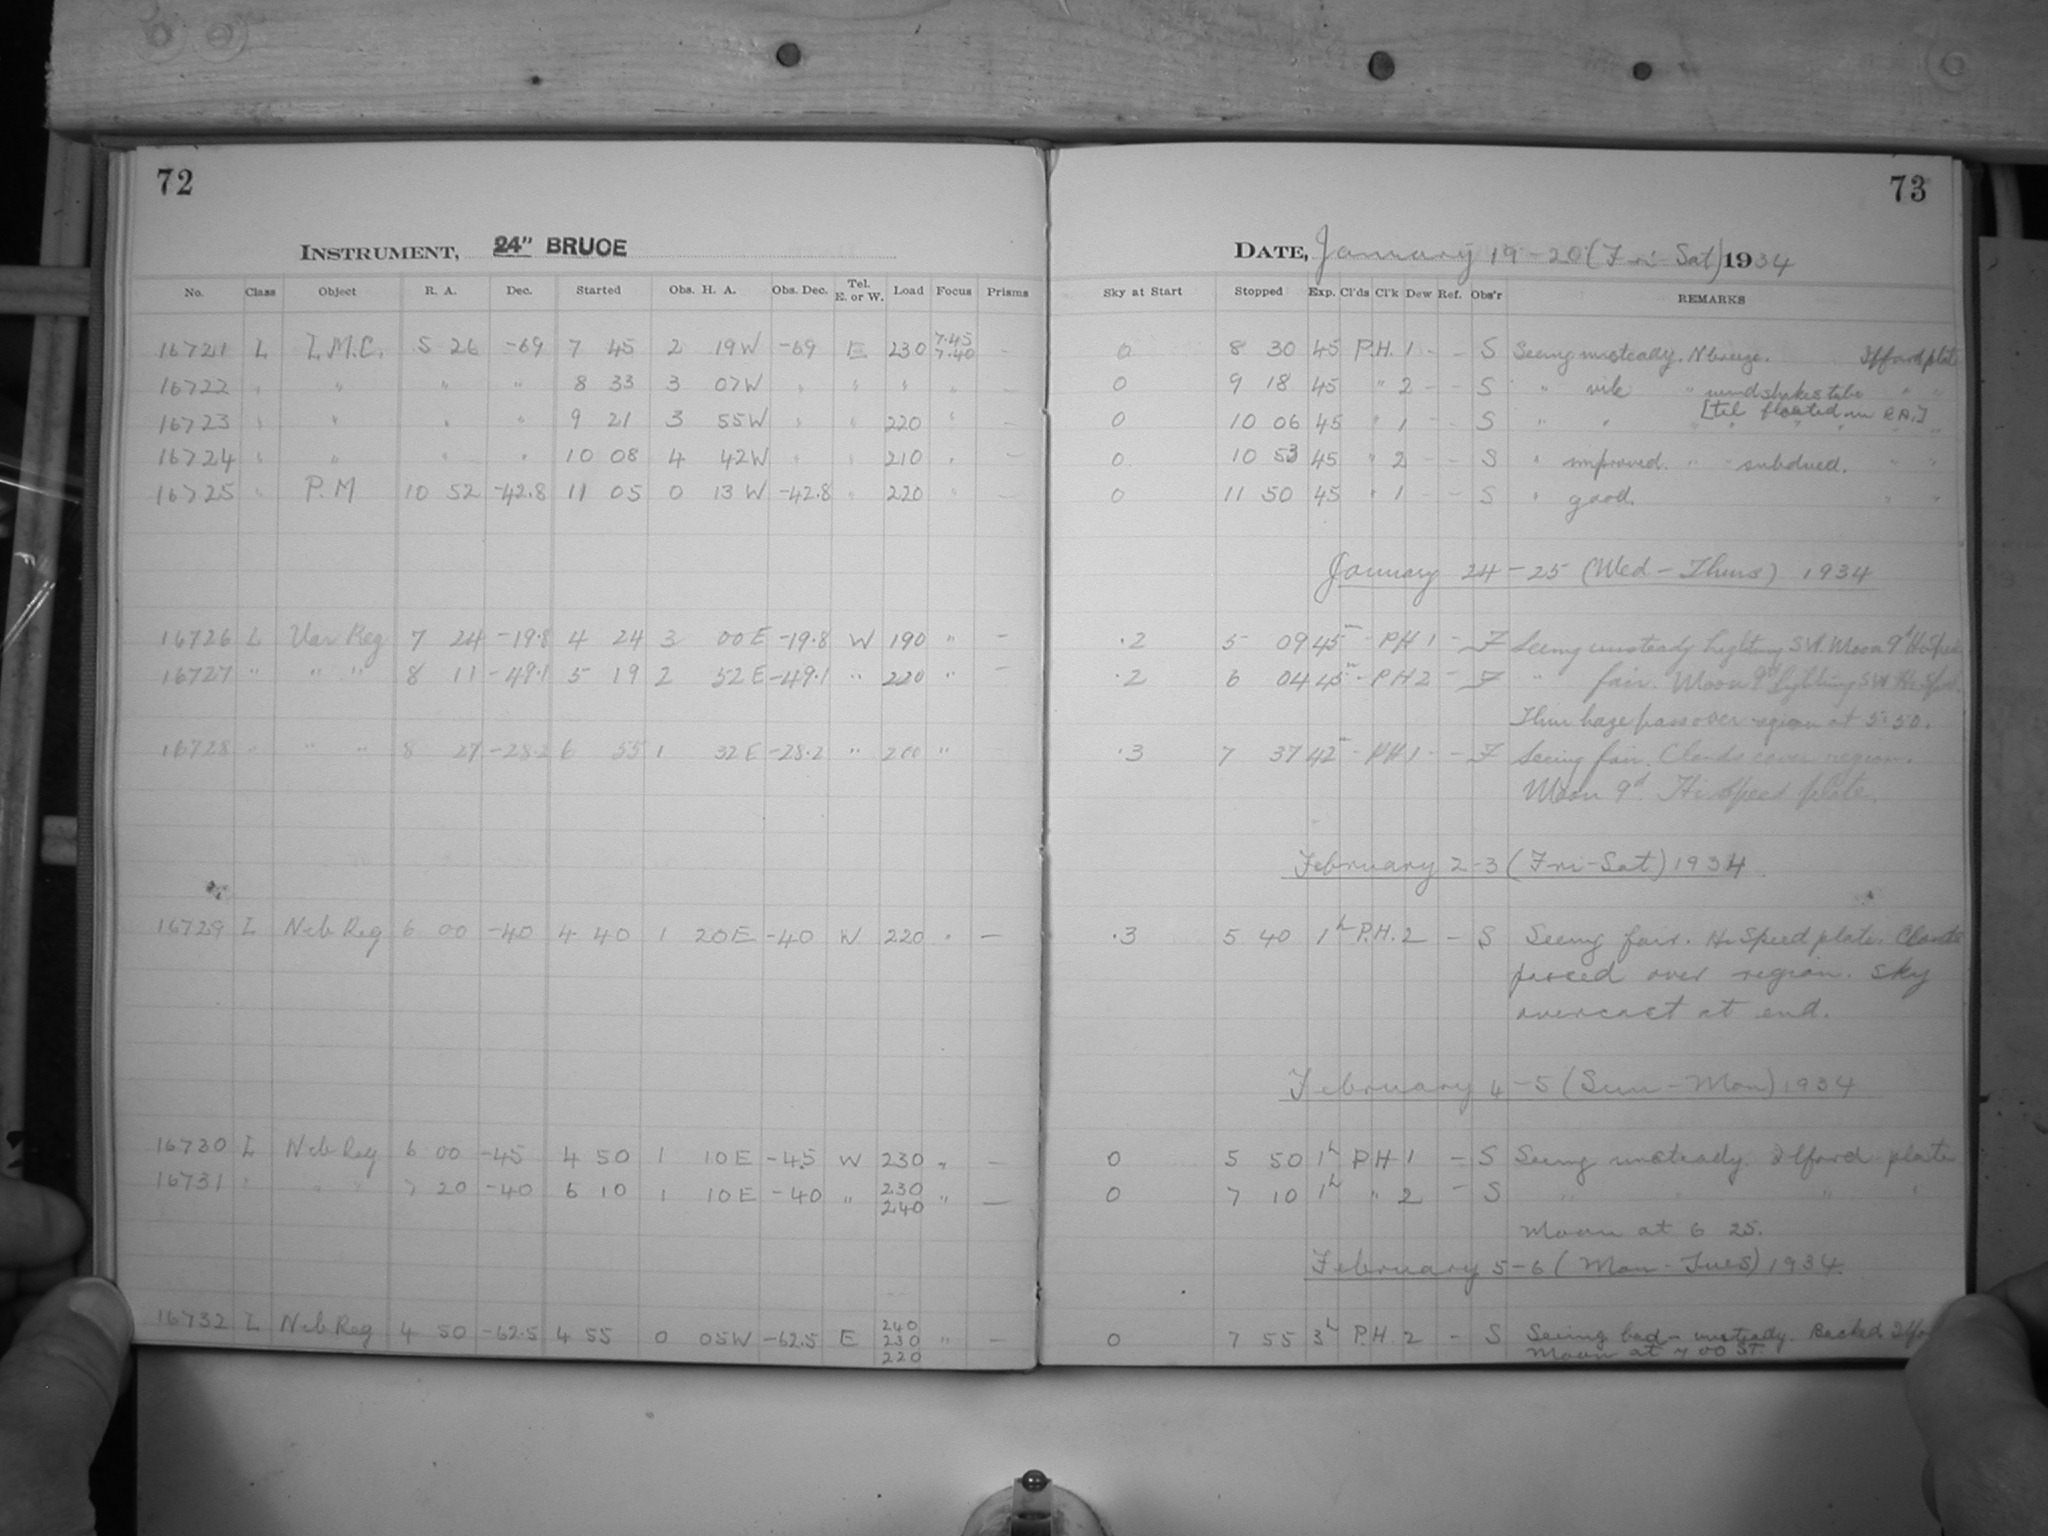 72
73
INSTRUMENT, 24" BRUCE
DATE, January 19-20 (Fri-Sat) 1934
No. Class Object R. A. Dec. Started Obs. H. A. Obs. Dec. Tel. E. or W. Load Focus Prisms Sky at Start Stopped Exp. Cl'ds Cl'k Dew Ref. Obs'r REMARKS
16721 L L.M.C. 5 26 -69 7 45 2 19W -69 E 230 7.45 7.40 - 0 8 30 45 P.H. 1 - - S Seeing unsteady. N breeze. Ilford plate
16722 " " " " 8 33 3 07W " " " " - 0 9 18 45 " 2 - - S " vile " wind shakes tube " "
[tel floated in R.A.]
16723 " " " " 9 21 3 55W " " 220 " - 0 10 06 45 " 1 - - S " " " " " "
16724 " " " " 10 08 4 42W " " 210 " - 0 10 53 45 " 2 - - S " improved. " subdued. " "
16725 " P.M 10 52 -42.8 11 05 0 13W -42.8 " 220 " - 0 11 50 45 " 1 - - S " good. " "
January 24-25 (Wed-Thurs) 1934
16726 L Var Reg 7 24 -19.8 4 24 3 00E -19.8 W 190 " - .2 5 09 45m - PH 1 - F Seeing unsteady Lightning SW. Moon 9d
16727 " " " 8 11 -49.1 5 19 2 52E -49.1 " 220 " - .2 6 04 45m - PH 2 - F " fair. Moon 9d Lightning SW
Thin haze pass over region at 5:50.
16728 " " " 8 27 -28.2 6 55 1 32E -28.2 " 200 " .3 7 37 42m - PH 1 - - F Seeing fair. Clouds cover region.
Moon 9d. Hi Speed plate.
February 2-3 (Fri-Sat) 1934
16729 L Neb Reg 6 00 -40 4 40 1 20E -40 W 220 " - .3 5 40 1h P.H. 2 - S Seeing fair. Hi Speed plate. Clouds
passed over region. Sky
overcast at end.
February 4-5 (Sun-Mon) 1934
16730 L Neb Reg 6 00 -45 4 50 1 10E -45 W 230 " - 0 5 50 1h P.H 1 - S Seeing unsteady. Ilford plate
16731 " " " 7 20 -40 6 10 1 10E -40 " 230 240 " - 0 7 10 1h " 2 - S " " " "
Moon at 6 25.
February 5-6 (Mon-Tues) 1934
16732 L Neb Reg 4 50 -62.5 4 55 0 05W -62.5 E 240 230 220 " - 0 7 55 3h P.H. 2 - S Seeing bad - unsteady. Backed
Moon at 7 00 ST.